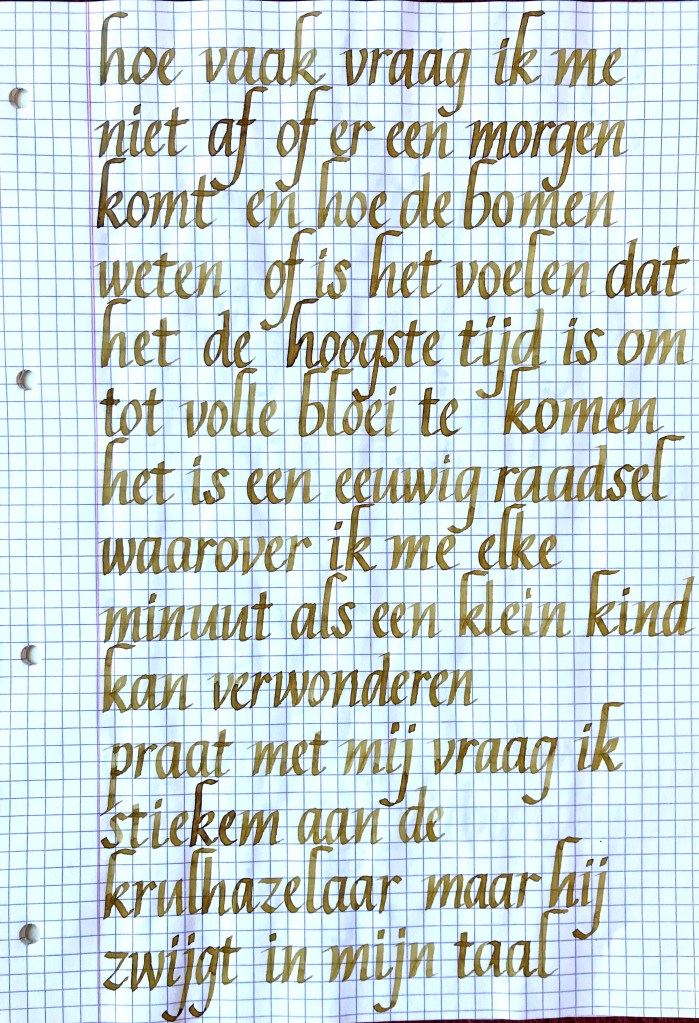 hoe vaak vraag ik me
niet af of er een morgen
komt en hoe de bomen
weten of is het voelen dat
het de hoogste tijd is om
tot volle bloei te komen
het is een eeuwig raadsel
waarover ik me elke
minuut als een klein kind
kan verwonderen
praat met mij vraag ik
stiekem aan de
krulhazelaar maar hij
zwijgt in mijn taal